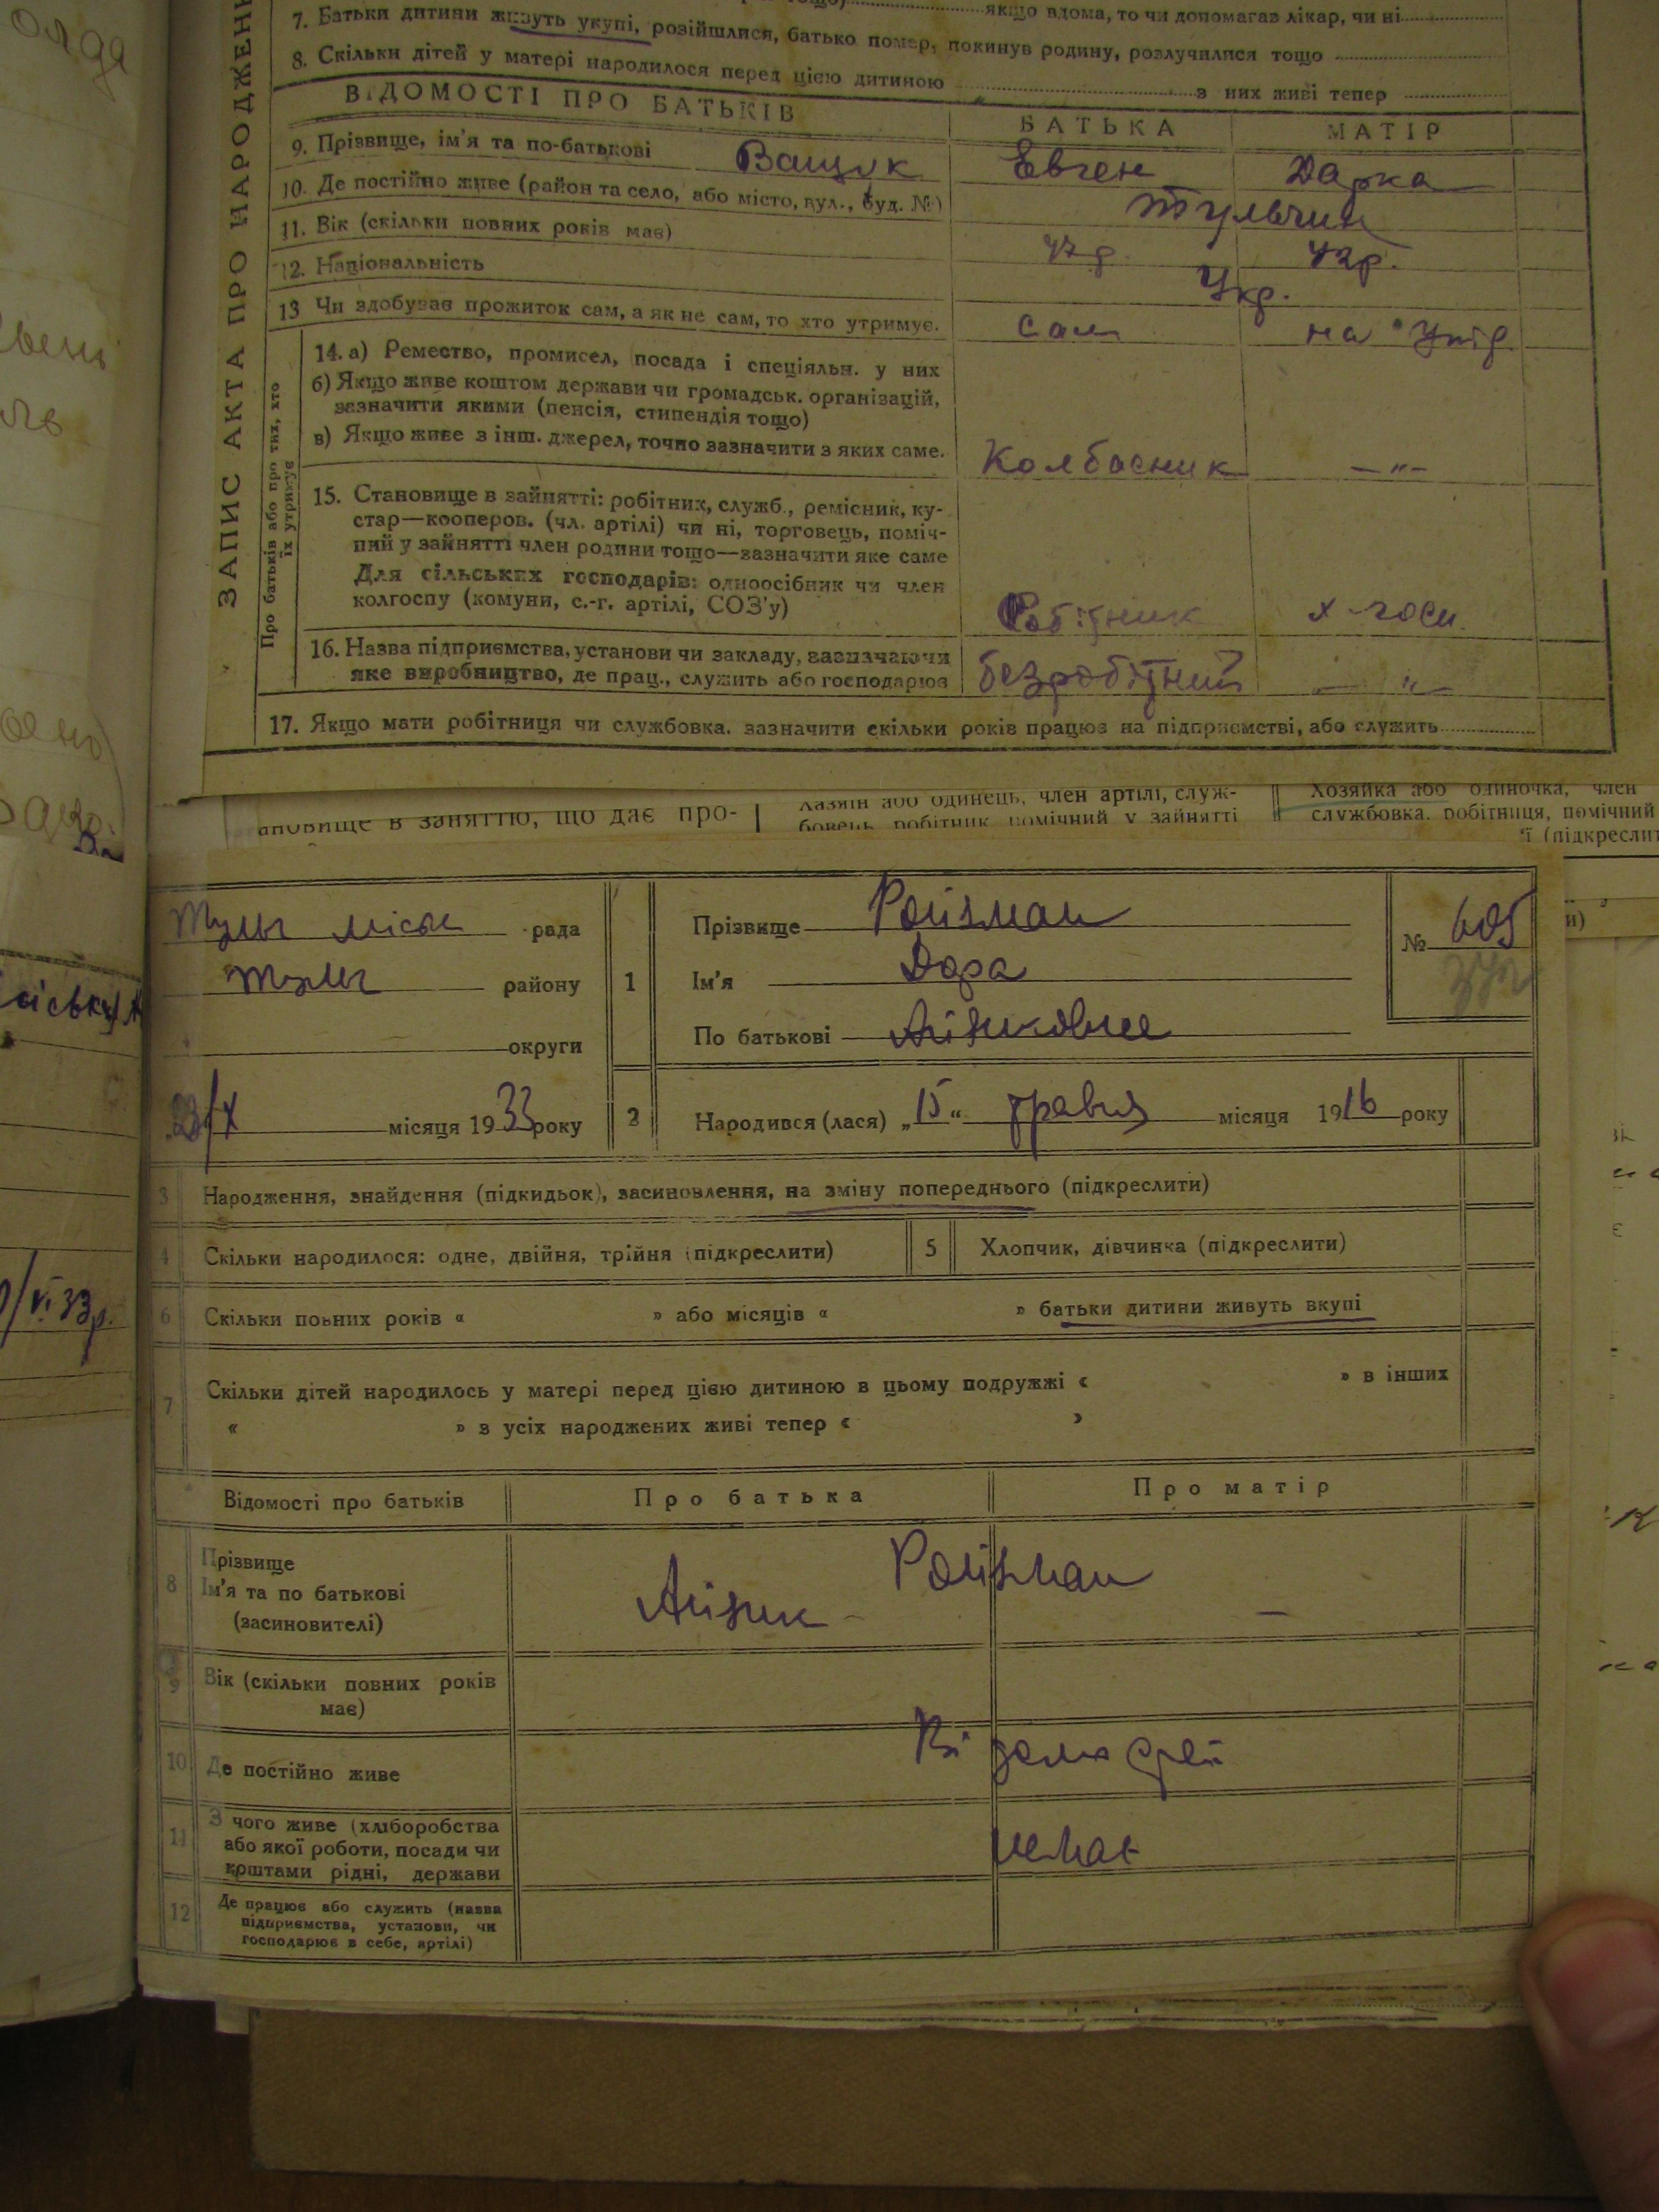 7. Батьки дитини живуть укупі, розійшлися, батько помер, покинув родину, розлучилися тощо
якщо вдома, то чи допомагав лікар, чи ні
8. Скільки дітей у матері народилося перед цією дитиною з них живі тепер
ВІДОМОСТІ ПРО БАТЬКІВ БАТЬКА МАТІР
9. Прізвище, ім'я та по-батькові Ващук Евген Дарка
10. Де постійно живе (район та село, або місто, вул., буд. №) Тульчин
11. Вік (скільки повних років має) 42р.
12. Національність Укр.
13 Чи здобував прожиток сам, а як не сам, то хто утримує. сам на утр.
ЗАПИС АКТА ПРО НАРОДЖЕН
Про батьків або про тих, хто їх утримує
14. а) Ремество, промисел, посада і спеціяльн. у них
б) Якщо живе коштом держави чи громадськ. організацій,
зазначити якими (пенсія, стипендія тощо)
в) Якщо живе з інш. джерел, точно зазначити з яких саме. Колбасник —"—
15. Становище в зайнятті: робітник, служб., ремісник, ку-
стар—кооперов. (чл. артілі) чи ні, торговець, поміч-
ний у зайнятті член родини тощо—зазначити яке саме
Для сільських господарів: одноосібник чи член
колгоспу (комуни, с.-г. артілі, СОЗ'у) Робітник х-госп.
16. Назва підприємства, установи чи закладу, зазначаючи
яке виробництво, де прац., служить або господарює безробітний —"—
17. Якщо мати робітниця чи службовка. зазначити скільки років працює на підприємстві, або служить
ановище в заняттю, що дає про-
хазяїн або одинець, член артілі, служ-
бовець, робітник, помічний у зайнятті
Хозяйка або одиночка, член
службовка, робітниця, помічний
ї (підкреслит
Тульч міськ рада
Тульч району
округи
23/X місяця 1933 року
1 Прізвище Ройзман
Ім'я Дора
По батькові Айзиковна
№ 605
2 Народився (лася) „15" травня місяця 1916 року
3 Народження, знайдення (підкидьок), засиновлення, на зміну попереднього (підкреслити)
4 Скільки народилося: одне, двійня, трійня (підкреслити) 5 Хлопчик, дівчинка (підкреслити)
6 Скільки повних років « » або місяців « » батьки дитини живуть вкупі
7 Скільки дітей народилось у матері перед цією дитиною в цьому подружжі « » в інших
« » з усіх народжених живі тепер « »
Відомості про батьків Про батька Про матір
8 Прізвище
Ім'я та по батькові
(засиновителі)
Ройзман
Айзик —
9 Вік (скільки повних років
має)
10 Де постійно живе
11 З чого живе (хліборобства
або якої роботи, посади чи
коштами рідні, держави
немає
12 Де працює або служить (назва
підприємства, установи, чи
господарює в себе, артілі)